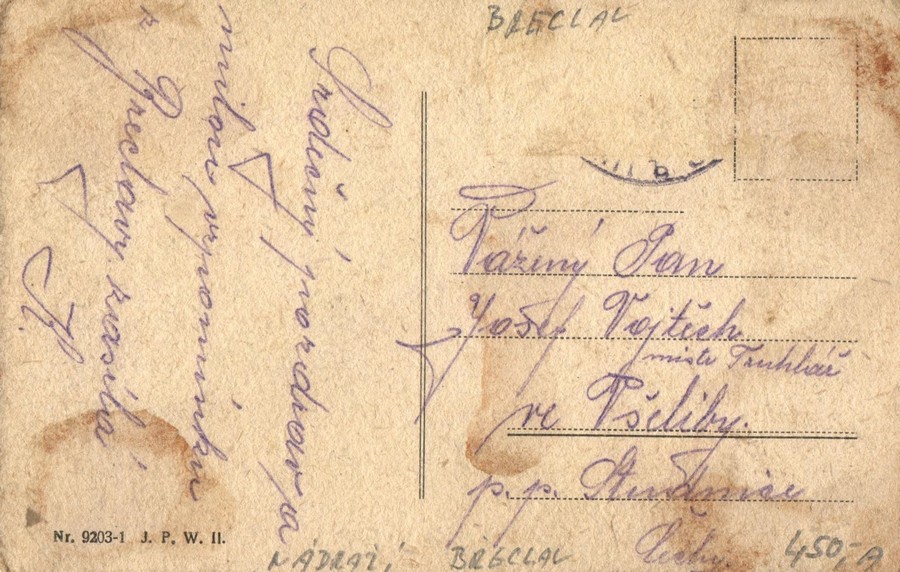 BŘECLAV
Srdečný pozdrav a
milou vzpomínku
z Břeclavy zasílá
Vážený Pan
Josef Vojtěch
mistr Truhlář
ve Všeliby.
p. p.
Čechy.
Nr. 9203-1 J. P. W. II.
NÁDRAŽÍ BŘECLAV
450,- A